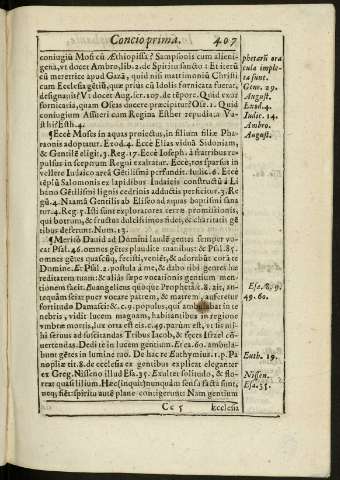 Concio prima. 407
coniugiũ Mosi cũ Æthiopissa? Sampsonis cum alieni-
gena, vt docet Ambro, lib. 2. de Spiritu sancto: Et iterũ
cũ meretrice apud Gazã, quid nisi matrimoniũ Christi
cum Ecclesia gẽtiũ, quæ prius cũ Idolis fornicata fuerat,
designant? Vt docet Aug. ser. 107. de tẽpore. Quid vxor
fornicaria, quam Oseas ducere præcipitur? Ose. 1. Quid
coniugium Assueri cum Regina Esther repudiata Va-
sthi? Esth. 4.
¶ Eccè Moses in aquas proiectus, in filium filiæ Pha-
raonis adoptatur. Exod. 4. Eccè Elias viduã Sidoniam,
& Gentilẽ eligit, 3. Reg. 17. Eccè Ioseph à fratribus re-
pulsus in sceptrum Regni exaltatur. Eccè, ros sparsus in
vellere Iudaico areã Gẽtilitatis perfundit. Iudic. 6. Eccè
tẽplũ Salomonis ex lapidibus Iudaicis constructũ à Li-
bano Gẽtilismi lignis cedrinis adductis perficitur. 3. Re-
gũ. 4. Naamã Gentilis ab Eliseo ad aquas baptismi sana
tur. 4. Reg. 5. Isti sunt exploratores terræ promissionis,
qui botrum, & fructus dulcissimos fidei, & charitatis gẽ
tibus deferunt. Num. 13.
¶ Meritò Dauid ad Domini laudẽ gentes semper vo-
cat Psal. 46. omnes gẽtes plaudite manibus: & Psal. 85.
omnes gẽtes quascũq, fecisti, veniẽt, & adorabũt corã te
Domine. Et Psal. 2. postula à me, & dabo tibi gẽtes hæ-
reditatem tuam: & alias sæpe vocationis gentium men-
tionem facit. Euangelicus quóque Propheta c. 8. ait, an-
tequãm sciat puer vocare patrem, & matrem, auferetur
fortitudo Damasci: & c. 9. populus, qui ambulabat in te
nebris, vidit lucem magnam, habitantibus in regione
vmbræ mortis, lux orta est eis. c. 49. parum est, vt sis mi-
hi seruus ad suscitandas Tribus Iacob, & fæces Israel cõ-
uertendas. Dedi te in lucem gentium. Et ca. 60. ambula-
bunt gẽtes in lumine tuo. De hac re Euthymius. 1. p. Pa
nopliæ tit. 8. de ecclesia ex gentibus explicat eleganter
ex Greg. Nisseno illud Esa. 35. Exultet solitudo, & flo-
reat quasi lilium. Hæc (inquit) nunquãm sensu facta sunt,
neq; fiẽt: spiritu autẽ plane contigerunt: Nam gentium
Cc 5 Ecclesia
phetarũ ora
cula imple-
ta sunt.
Gene. 29.
August.
Exod. 4.
Iudic. 14.
Ambro.
August.
Esa. 8. 9.
49. 60.
Euth. 19.
Nissen.
Esa. 35.